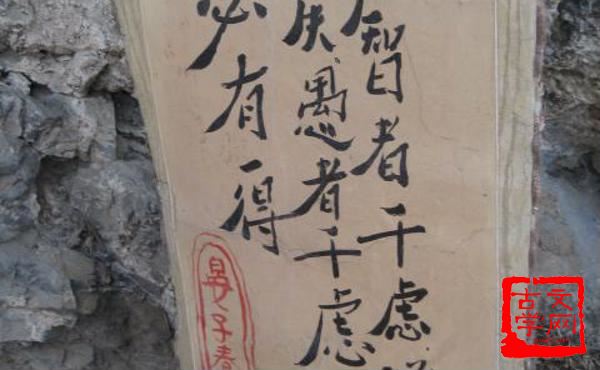 智者千虑
失愚者千虑
必有一得
晏子春
古文
学网